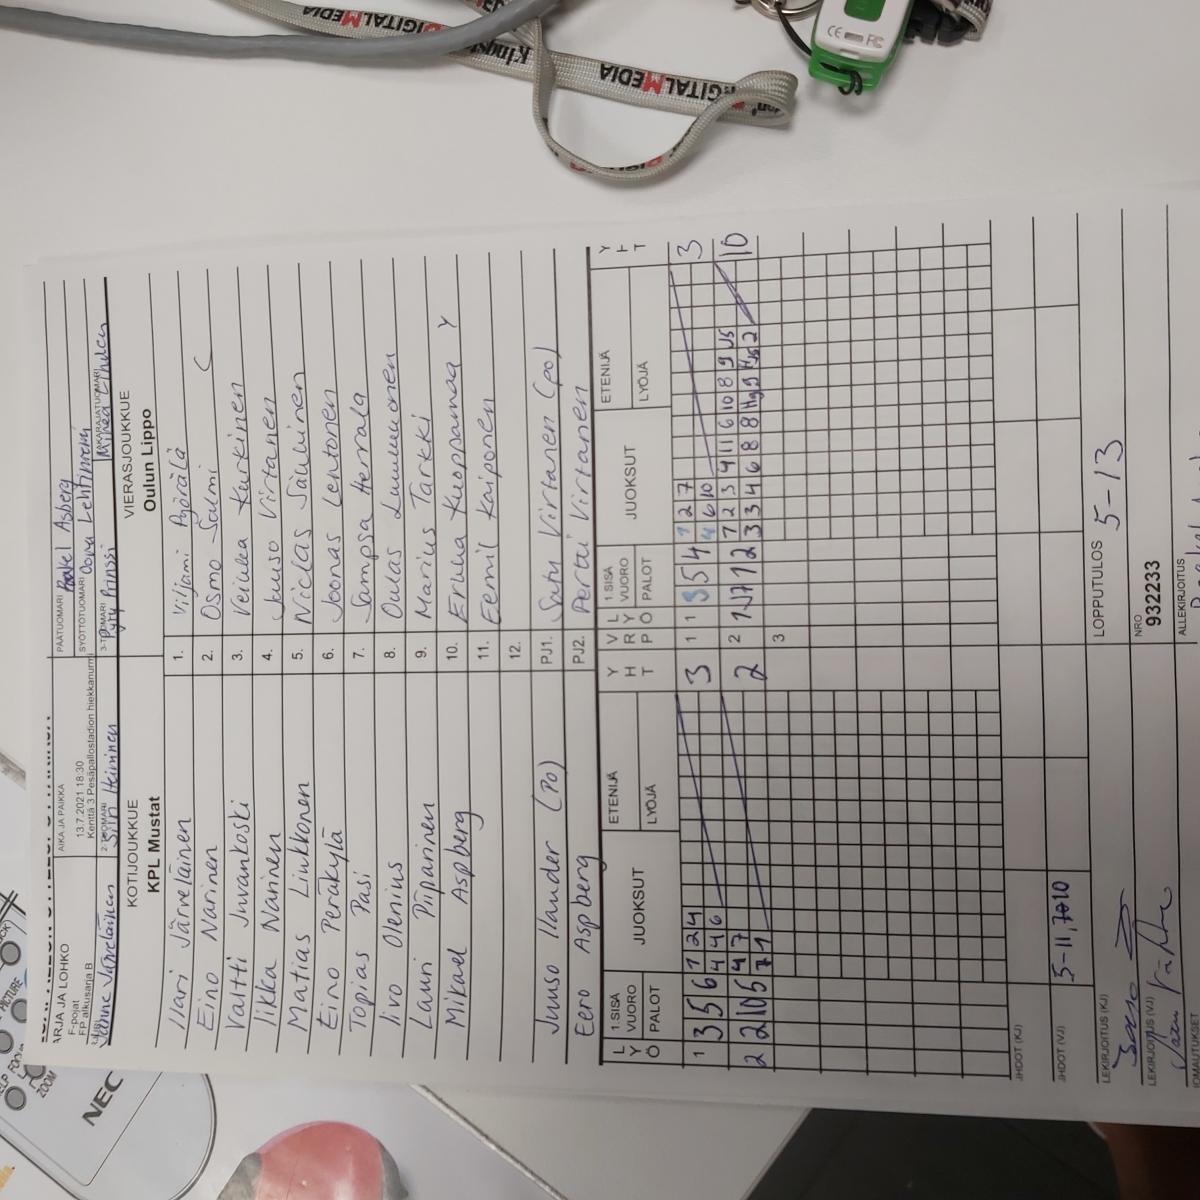 ARJA JA LOHKO
F-pojat
FP alkusarja B
AIKA JA PAIKKA
13.7.2021 18:30
Kenttä 3 Pesäpallostadion hiekkanurmi
PÄÄTUOMARI Asberg
SYÖTTÖTUOMARI Oona Lehtiniemi
Janne Järveläinen
2-TUOMARI Siiri Heininen
3-TUOMARI Pyry Prinssi
TAKARAJATUOMARI
KOTIJOUKKUE
KPL Mustat
VIERASJOUKKUE
Oulun Lippo
Ilari Järveläinen 1. Viljami Pyörälä
Eino Narinen 2. Osmo Salmi
Valtti Juvankoski 3. Veikka Kurkinen
Iikka Narinen 4. Juuso Virtanen
Matias Liukkonen 5. Niclas Säulinen
Eino Peräkylä 6. Joonas Lehtonen
Topias Pasi 7. Sampsa Herrala
Iivo Olenius 8. Oulas
Lauri Piiparinen 9. Marius Tarkki
Mikael Aspberg 10. Erkka Kuoppamaa Y
11. Eemil Kaiponen
12.
Juuso Ilander (PO) PJ1. Satu Virtanen (po)
Eero Aspberg PJ2. Pertti Virtanen
LYÖ 1.SISÄ VUORO PALOT JUOKSUT ETENIJÄ LYÖJÄ YHT VRP LYÖ 1.SISÄ VUORO PALOT JUOKSUT ETENIJÄ LYÖJÄ YHT
1 3 5 6 1 2 4 3 1 1 3 5 4 1 2 7 3
4 4 6 4 6 10
2 2 10 5 4 7 2 2 1 2 3 4 11 6 10 8 9 10
7 1 3 3 4 6 8 8 2
3
JHDOT (KJ)
JHDOT (VJ)
LOPPUTULOS 5-13
LEKIRJOITUS (KJ)
NRO
932233
LEKIRJOITUS (VJ)
ALLEKIRJOITUS
OMAUTUKSET
DIGITALMEDIA
Kingston
DIGITALMEDIA
CE FC
NEC
PICTURE
HELP FOCUS
ZOOM